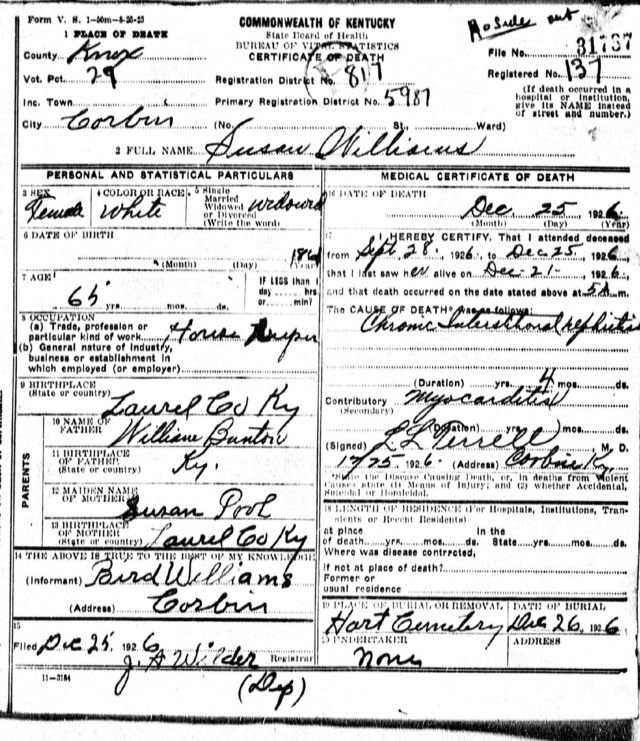 Form V. S. 1-50m-8-25-23
1 PLACE OF DEATH
County Knox
Vot. Pct. 29
Inc. Town
City Corbin
COMMONWEALTH OF KENTUCKY
State Board of Health
BUREAU OF VITAL STATISTICS
CERTIFICATE OF DEATH
Registration District No. 817
Primary Registration District No. 5987
(No. St. Ward)
No Side out
File No. 31787
Registered No. 137
(If death occurred in a hospital or institution, give its NAME instead of street and number.)
2 FULL NAME Susan Williams
PERSONAL AND STATISTICAL PARTICULARS
3 SEX Female
4 COLOR OR RACE White
5 Single Married Widowed or Divorced (Write the word) widowed
6 DATE OF BIRTH
(Month) (Day) (Year)
7 AGE
65 yrs. mos. ds.
IF LESS than 1 day hrs. or min?
8 OCCUPATION
(a) Trade, profession or particular kind of work House Keeper
(b) General nature of industry, business or establishment in which employed (or employer)
9 BIRTHPLACE
(State or country) Laurel Co Ky
PARENTS
10 NAME OF FATHER William Banton
11 BIRTHPLACE OF FATHER (State or country) Ky.
12 MAIDEN NAME OF MOTHER Susan Pool
13 BIRTHPLACE OF MOTHER (State or country) Laurel Co Ky
14 THE ABOVE IS TRUE TO THE BEST OF MY KNOWLEDGE
(Informant) Bird Williams
(Address) Corbin
15
Filed Dec 25, 1926 J. A Wilder Registrar
11-3184
(Dep)
MEDICAL CERTIFICATE OF DEATH
16 DATE OF DEATH
Dec. 25 1926
(Month) (Day) (Year)
17 I HEREBY CERTIFY, That I attended deceased
from Sept. 28, 1926, to Dec-25, 1926,
that I last saw her alive on Dec-21-, 1926,
and that death occurred on the date stated above at 5 A m.
The CAUSE OF DEATH* was as follows:
Chronic Intersthoral nephritis
(Duration) yrs. 4 mos. ds.
Contributory Myocarditis
(Secondary)
(Duration) yrs. mos. ds.
(Signed) L L Terrell M. D.
12/25, 1926. (Address) Corbin Ky
*State the Disease Causing Death, or, in deaths from Violent Causes state (1) Means of Injury; and (2) whether Accidental, Suicidal or Homicidal.
18 LENGTH OF RESIDENCE (For Hospitals, Institutions, Transients or Recent Residents)
at place of death yrs. mos. ds. In the State yrs. mos. ds.
Where was disease contrcted,
If not at place of death?
Former or usual residence
19 PLACE OF BURIAL OR REMOVAL Hart Cemetery
DATE OF BURIAL Dec 26, 1926
20 UNDERTAKER None
ADDRESS